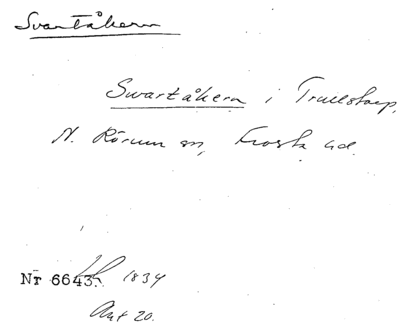 Svartåkern
Swartåkern i Trulstorp,
N. Rörum sn, Frosta hd.
Nr 6643. LS 1834
Akt 20.